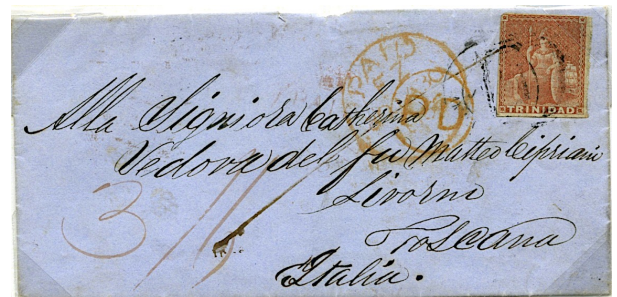 PAID
PD
TRINIDAD
Alla Signiora Catherina
Vedova del fu Matteo Cipriani
Livorni
Toscana
Italia.
3/